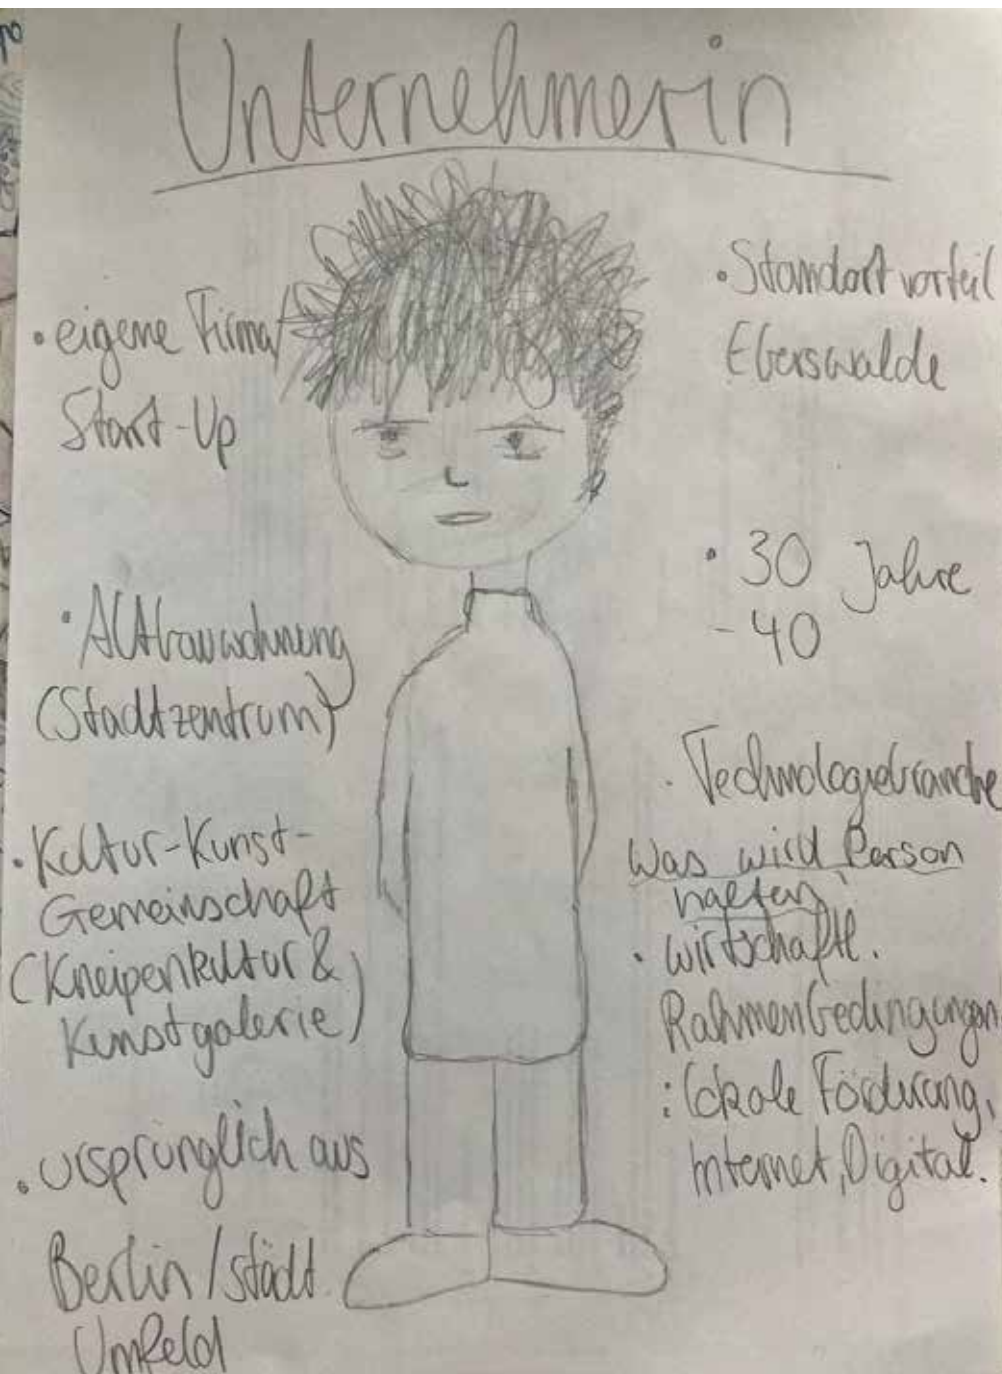 Unternehmerin
• eigene Firma/
Start-Up
• Altbauwohnung
(Stadtzentrum)
• Kultur-Kunst-
Gemeinschaft
(Kneipenkultur &
Kunstgalerie)
• ursprünglich aus
Berlin/städt.
Umfeld
• Standortvorteil
Eberswalde
• 30 Jahre
- 40
• Technologiebranche
Was wird Person
halten?
• wirtschaftl.
Rahmenbedingungen
: lokale Förderung,
Internet, Digital.